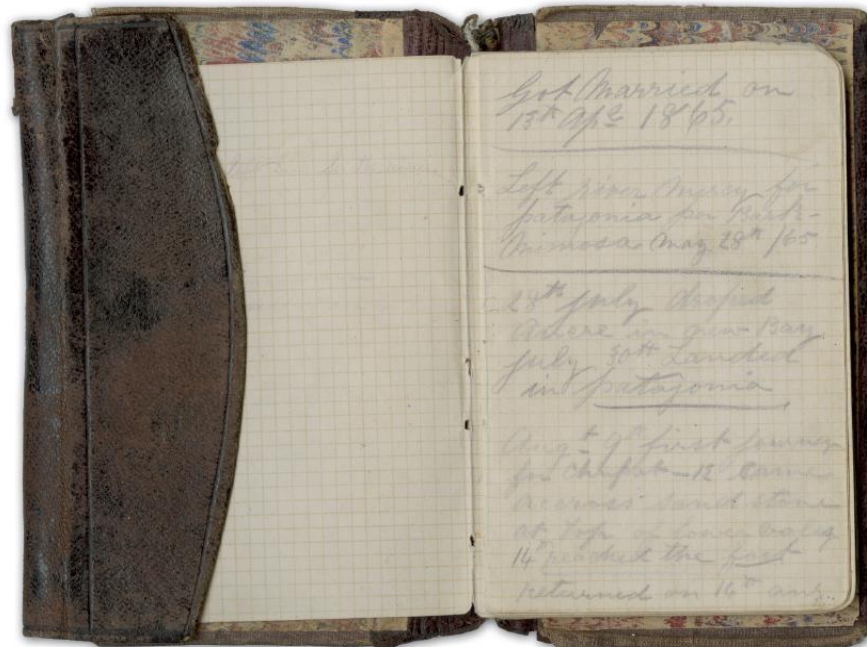 Got Married on
13th Apl 1865.
Left river Mercy for
patagonia per Bark
Mimosa May 28th /65
28th July droped
Ancre in new Bay
July 30th Landed
in patagonia
Augt 9th first Journey
for Chupat — 12 Came
accross sand stone
at Top of lower valey
14th reached the fort
returned on 16th aug